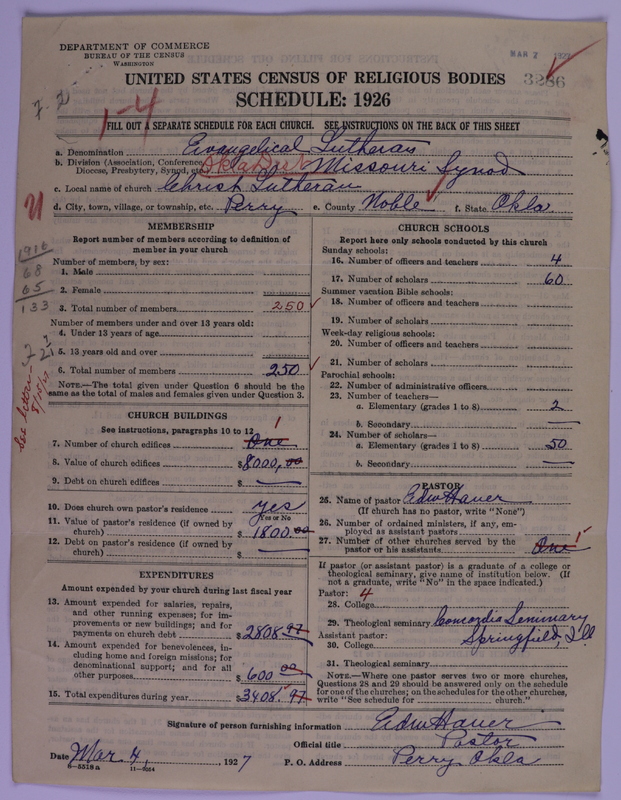 DEPARTMENT OF COMMERCE
BUREAU OF THE CENSUS
WASHINGTON
MAR 7 1927
3286
UNITED STATES CENSUS OF RELIGIOUS BODIES
SCHEDULE: 1926
1-4
FILL OUT A SEPARATE SCHEDULE FOR EACH CHURCH. SEE INSTRUCTIONS ON THE BACK OF THIS SHEET
a. Denomination Evangelical Lutheran
b. Division (Association, Conference, Diocese, Presbytery, Synod, etc.) Okla Dist Missouri Synod
c. Local name of church Christ Lutheran
d. City, town, village, or township, etc. Perry e. County Noble f. State Okla.
MEMBERSHIP
Report number of members according to definition of member in your church
Number of members, by sex:
1. Male
2. Female
3. Total number of members 250
Number of members under and over 13 years old:
4. Under 13 years of age
5. 13 years old and over
6. Total number of members 250
NOTE.—The total given under Question 6 should be the same as the total of males and females given under Question 3.
1916
68
65
133
See letter
CHURCH BUILDINGS
See instructions, paragraphs 10 to 12
7. Number of church edifices One 1
8. Value of church edifices $8000,00
9. Debt on church edifices $
10. Does church own pastor's residence yes
Yes or No
11. Value of pastor's residence (if owned by church) $1800.00
12. Debt on pastor's residence (if owned by church) $
EXPENDITURES
Amount expended by your church during last fiscal year
13. Amount expended for salaries, repairs, and other running expenses; for improvements or new buildings; and for payments on church debt $2808.97
14. Amount expended for benevolences, including home and foreign missions; for denominational support; and for all other purposes $600 00
15. Total expenditures during year $3408.97
CHURCH SCHOOLS
Report here only schools conducted by this church
Sunday schools:
16. Number of officers and teachers 4
17. Number of scholars 60
Summer vacation Bible schools:
18. Number of officers and teachers
19. Number of scholars
Week-day religious schools:
20. Number of officers and teachers
21. Number of scholars
Parochial schools:
22. Number of administrative officers
23. Number of teachers—
a. Elementary (grades 1 to 8) 2
b. Secondary
24. Number of scholars—
a. Elementary (grades 1 to 8) 50
b. Secondary
PASTOR
25. Name of pastor Edw Hauer
(If church has no pastor, write "None")
26. Number of ordained ministers, if any, employed as assistant pastors
27. Number of other churches served by the pastor or his assistants One 1
If pastor (or assistant pastor) is a graduate of a college or theological seminary, give name of institution below. (If not a graduate, write "No" in the space indicated.)
Pastor: 4
28. College
29. Theological seminary Concordia Seminary
Assistant pastor: Springfield, Ill
30. College
31. Theological seminary
NOTE.—Where one pastor serves two or more churches, Questions 28 and 29 should be answered only on the schedule for one of the churches; on the schedules for the other churches, write "See schedule for church."
Signature of person furnishing information Edw Hauer
Official title Pastor
Date Mar 4, 1927 P. O. Address Perry Okla
8-5518a 11-9054